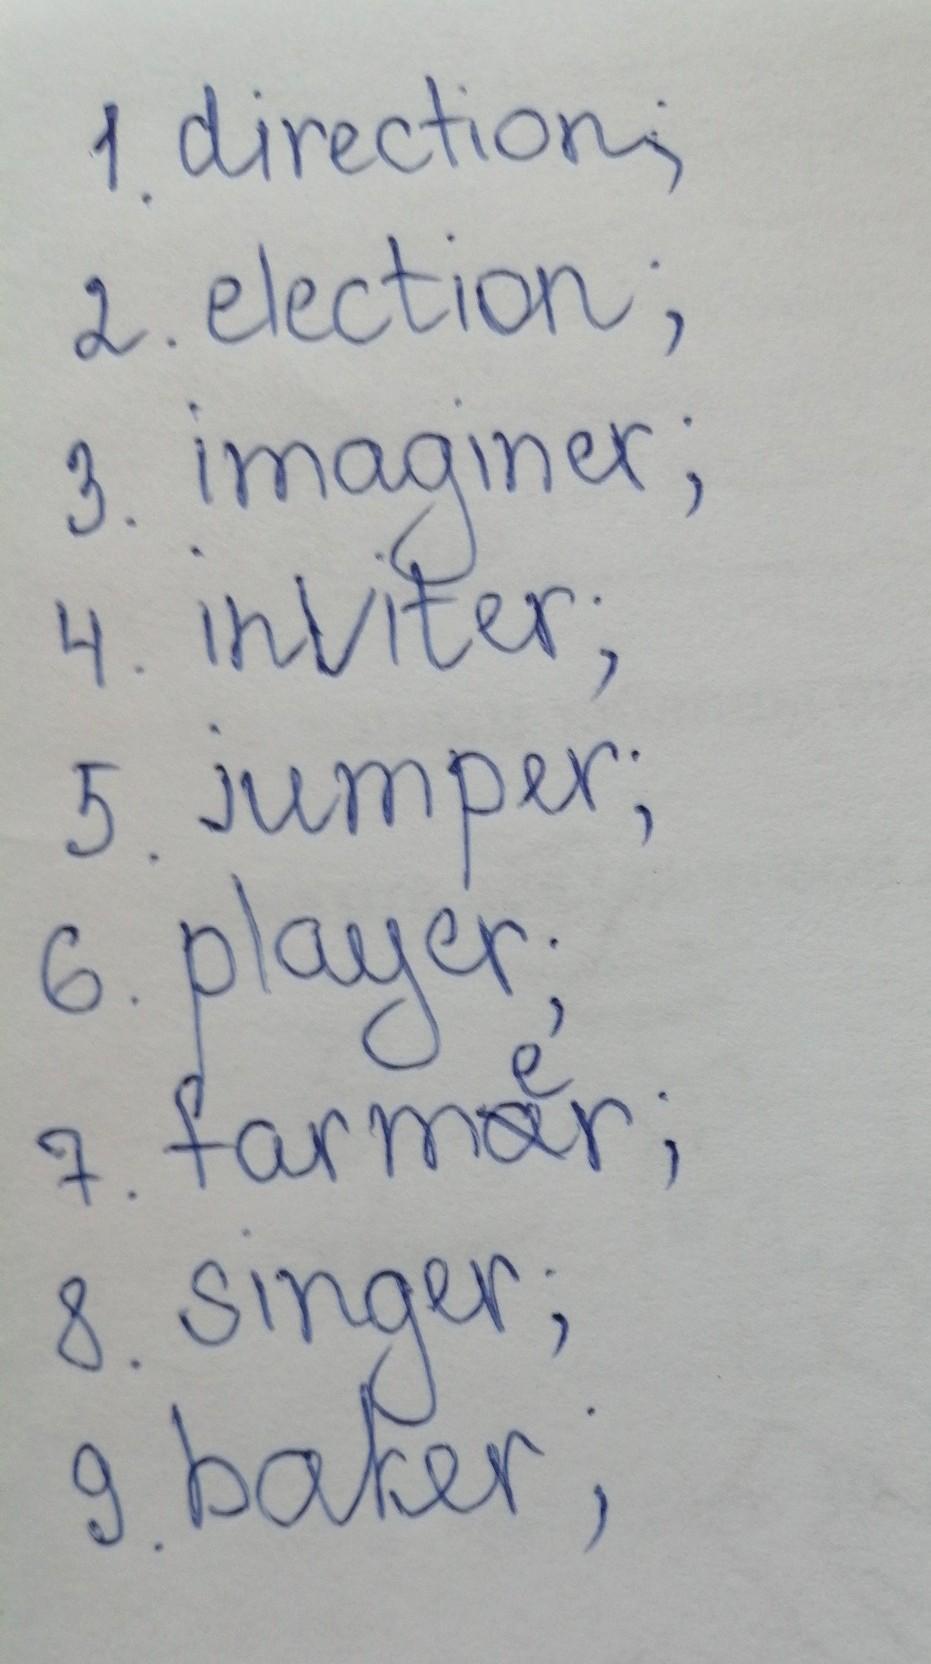 1. direction;
2. election;
3. imaginer;
4. inviter;
5. jumper;
6. player;
7. farmer;
8. singer;
9. baker;